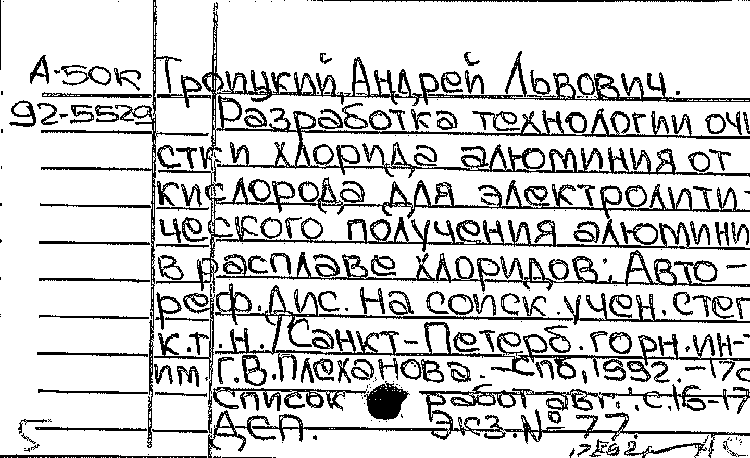 А-50к Троицкий, Андрей Львович.
92-5529 Разработка технологии очи
стки хлорида алюминия от
кислорода для электролити-
ческого получения алюмини
в расплаве хлоридов: Авто-
реф. дис. на соиск. учен. степ
к.т.н. / Санкт-Петерб. горн. ин-т
им. Г.В.Плеханова. -Спб, 1992. -17с
Список работ авт.: с.16-17
ДСП. Экз.№ 77.